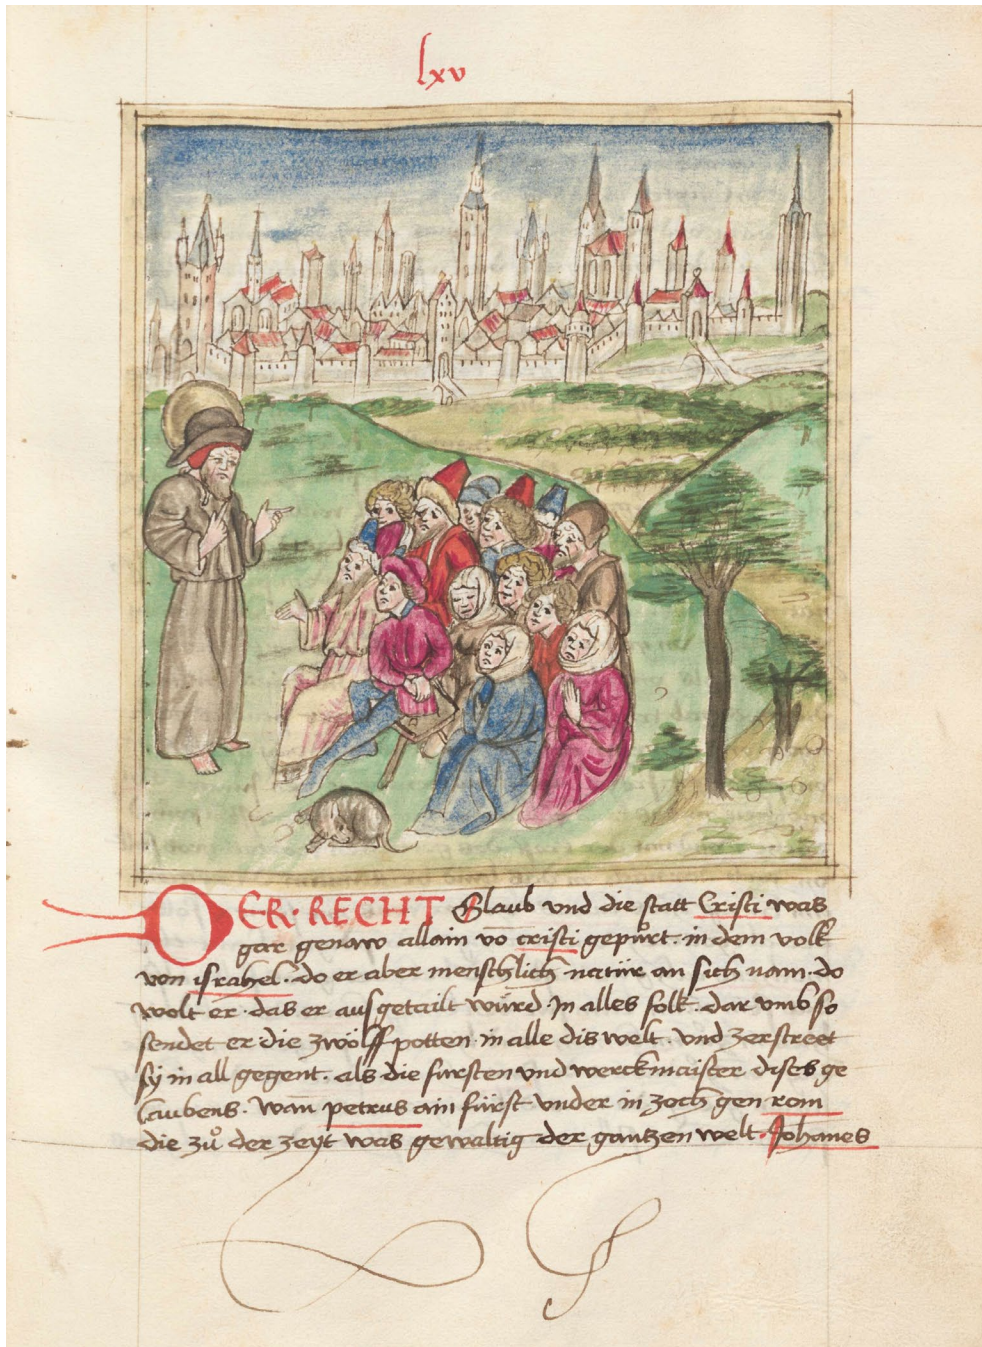 lxv
DER · RECHT Glaub vnd die statt Cristi was
gar genaw allain vō cristi gepůrt. in dem volk
von israhel. do er aber menschlich natür an sich nam. do
wolt er. das er ausgetailt würd Jn alles folk. dar vmb so
sendet er die zwölff potten in alle dis welt. vnd zerstreet
sy in all gegent. als die fürsten vnd werckmaister dises ge
laubens. wan̄ petrus ain fürst vnder in zoch gen rom
die zů der zeyt was gewaltig der gantzen welt. Johanes